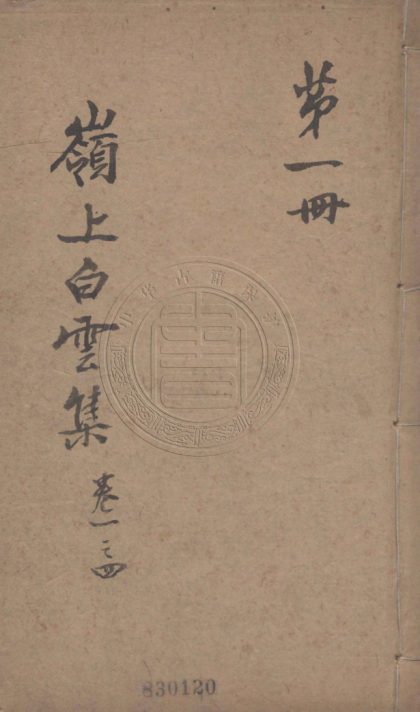 第一冊
嶺上白雲集
卷一之四
830120